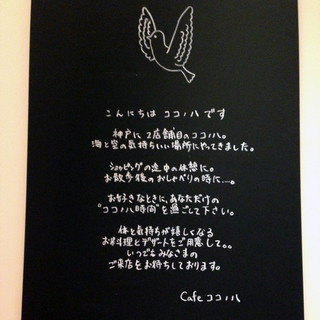 こんにちは ココノハです
神戸に 2店舗目のココノハ。
海と空の気持ちいい場所にやってきました。
ショッピングの途中の休憩に。
お散歩後のおしゃべりの時に…。
お好きなときに、あなただけの
“ココノハ時間”を過ごして下さい。
体と気持ちが嬉しくなる
お料理とデザートをご用意して。。
いつでもみなさまの
ご来店をお待ちしております。
Cafe ココノハ